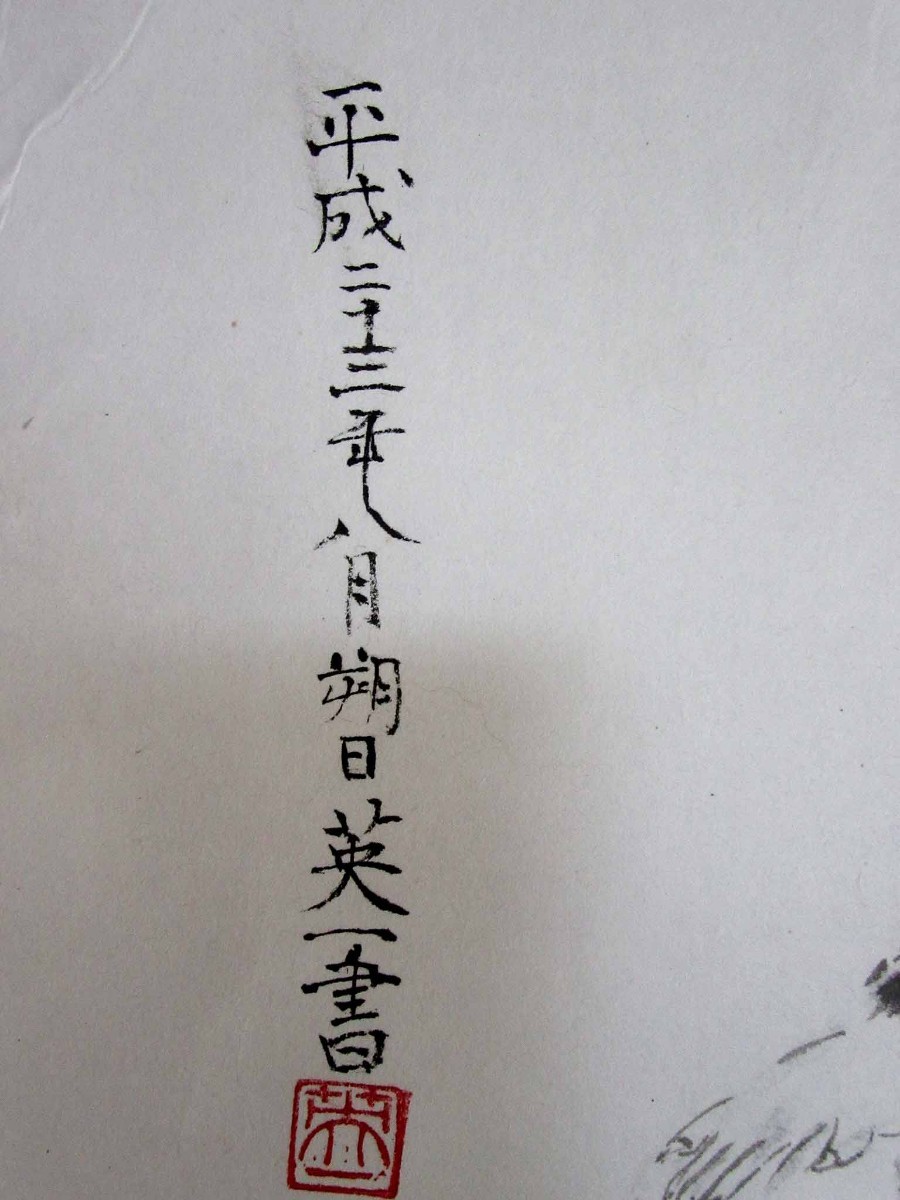 平成二十三年八月朔日英一書
英